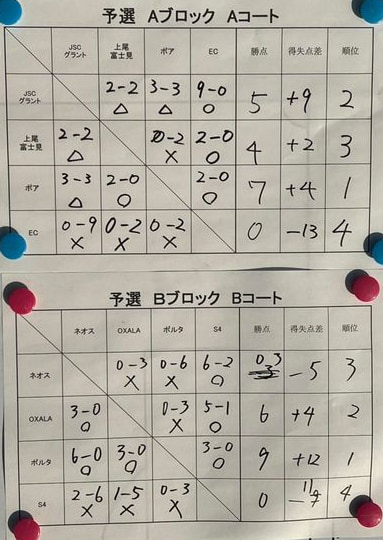 予選 Aブロック Aコート
JSC グラント 上尾 富士見 ボア EC 勝点 得失点差 順位
JSC グラント 2-2 △ 3-3 △ 9-0 ○ 5 +9 2
上尾 富士見 2-2 △ 0-2 × 2-0 ○ 4 +2 3
ボア 3-3 △ 2-0 ○ 2-0 ○ 7 +4 1
EC 0-9 × 0-2 × 0-2 × 0 -13 4
予選 Bブロック Bコート
ネオス OXALA ポルタ S4 勝点 得失点差 順位
ネオス 0-3 × 0-6 × 6-2 ○ 3 -5 3
OXALA 3-0 ○ 0-3 × 5-1 ○ 6 +4 2
ポルタ 6-0 ○ 3-0 ○ 3-0 ○ 9 +12 1
S4 2-6 × 1-5 × 0-3 × 0 -11 4